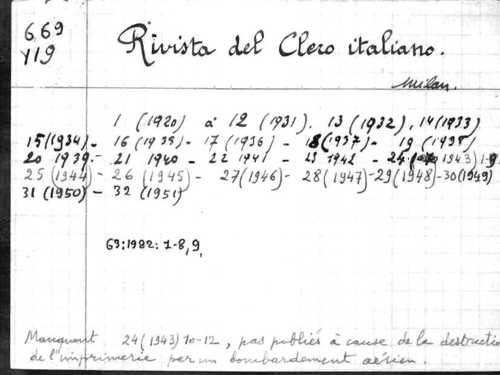 669
Y19
Rivista del Clero italiano.
Milan.
1 (1920) à 12 (1931). 13 (1932), 14 (1933)
15 (1934) - 16 (1935) - 17 (1936) - 18 (1937) - 19 (1938)
20 1939 - 21 1940 - 22 1941 - 23 1942 - 24 1943) 1-9
25 (1944) - 26 (1945) - 27 (1946) - 28 (1947) - 29 (1948) - 30 (1949)
31 (1950) - 32 (1951)
63:1982: 7-8, 9,
Manquent 24 (1943) 10-12, pas publiés à cause de la destructio
de l'imprimerie par un bombardement aérien.